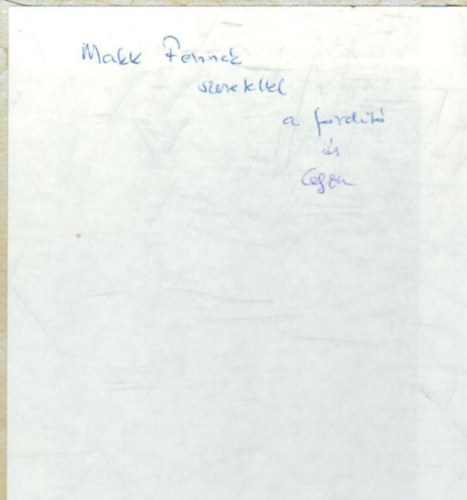 Makk Ferinek
szeretettel
a fordító
és